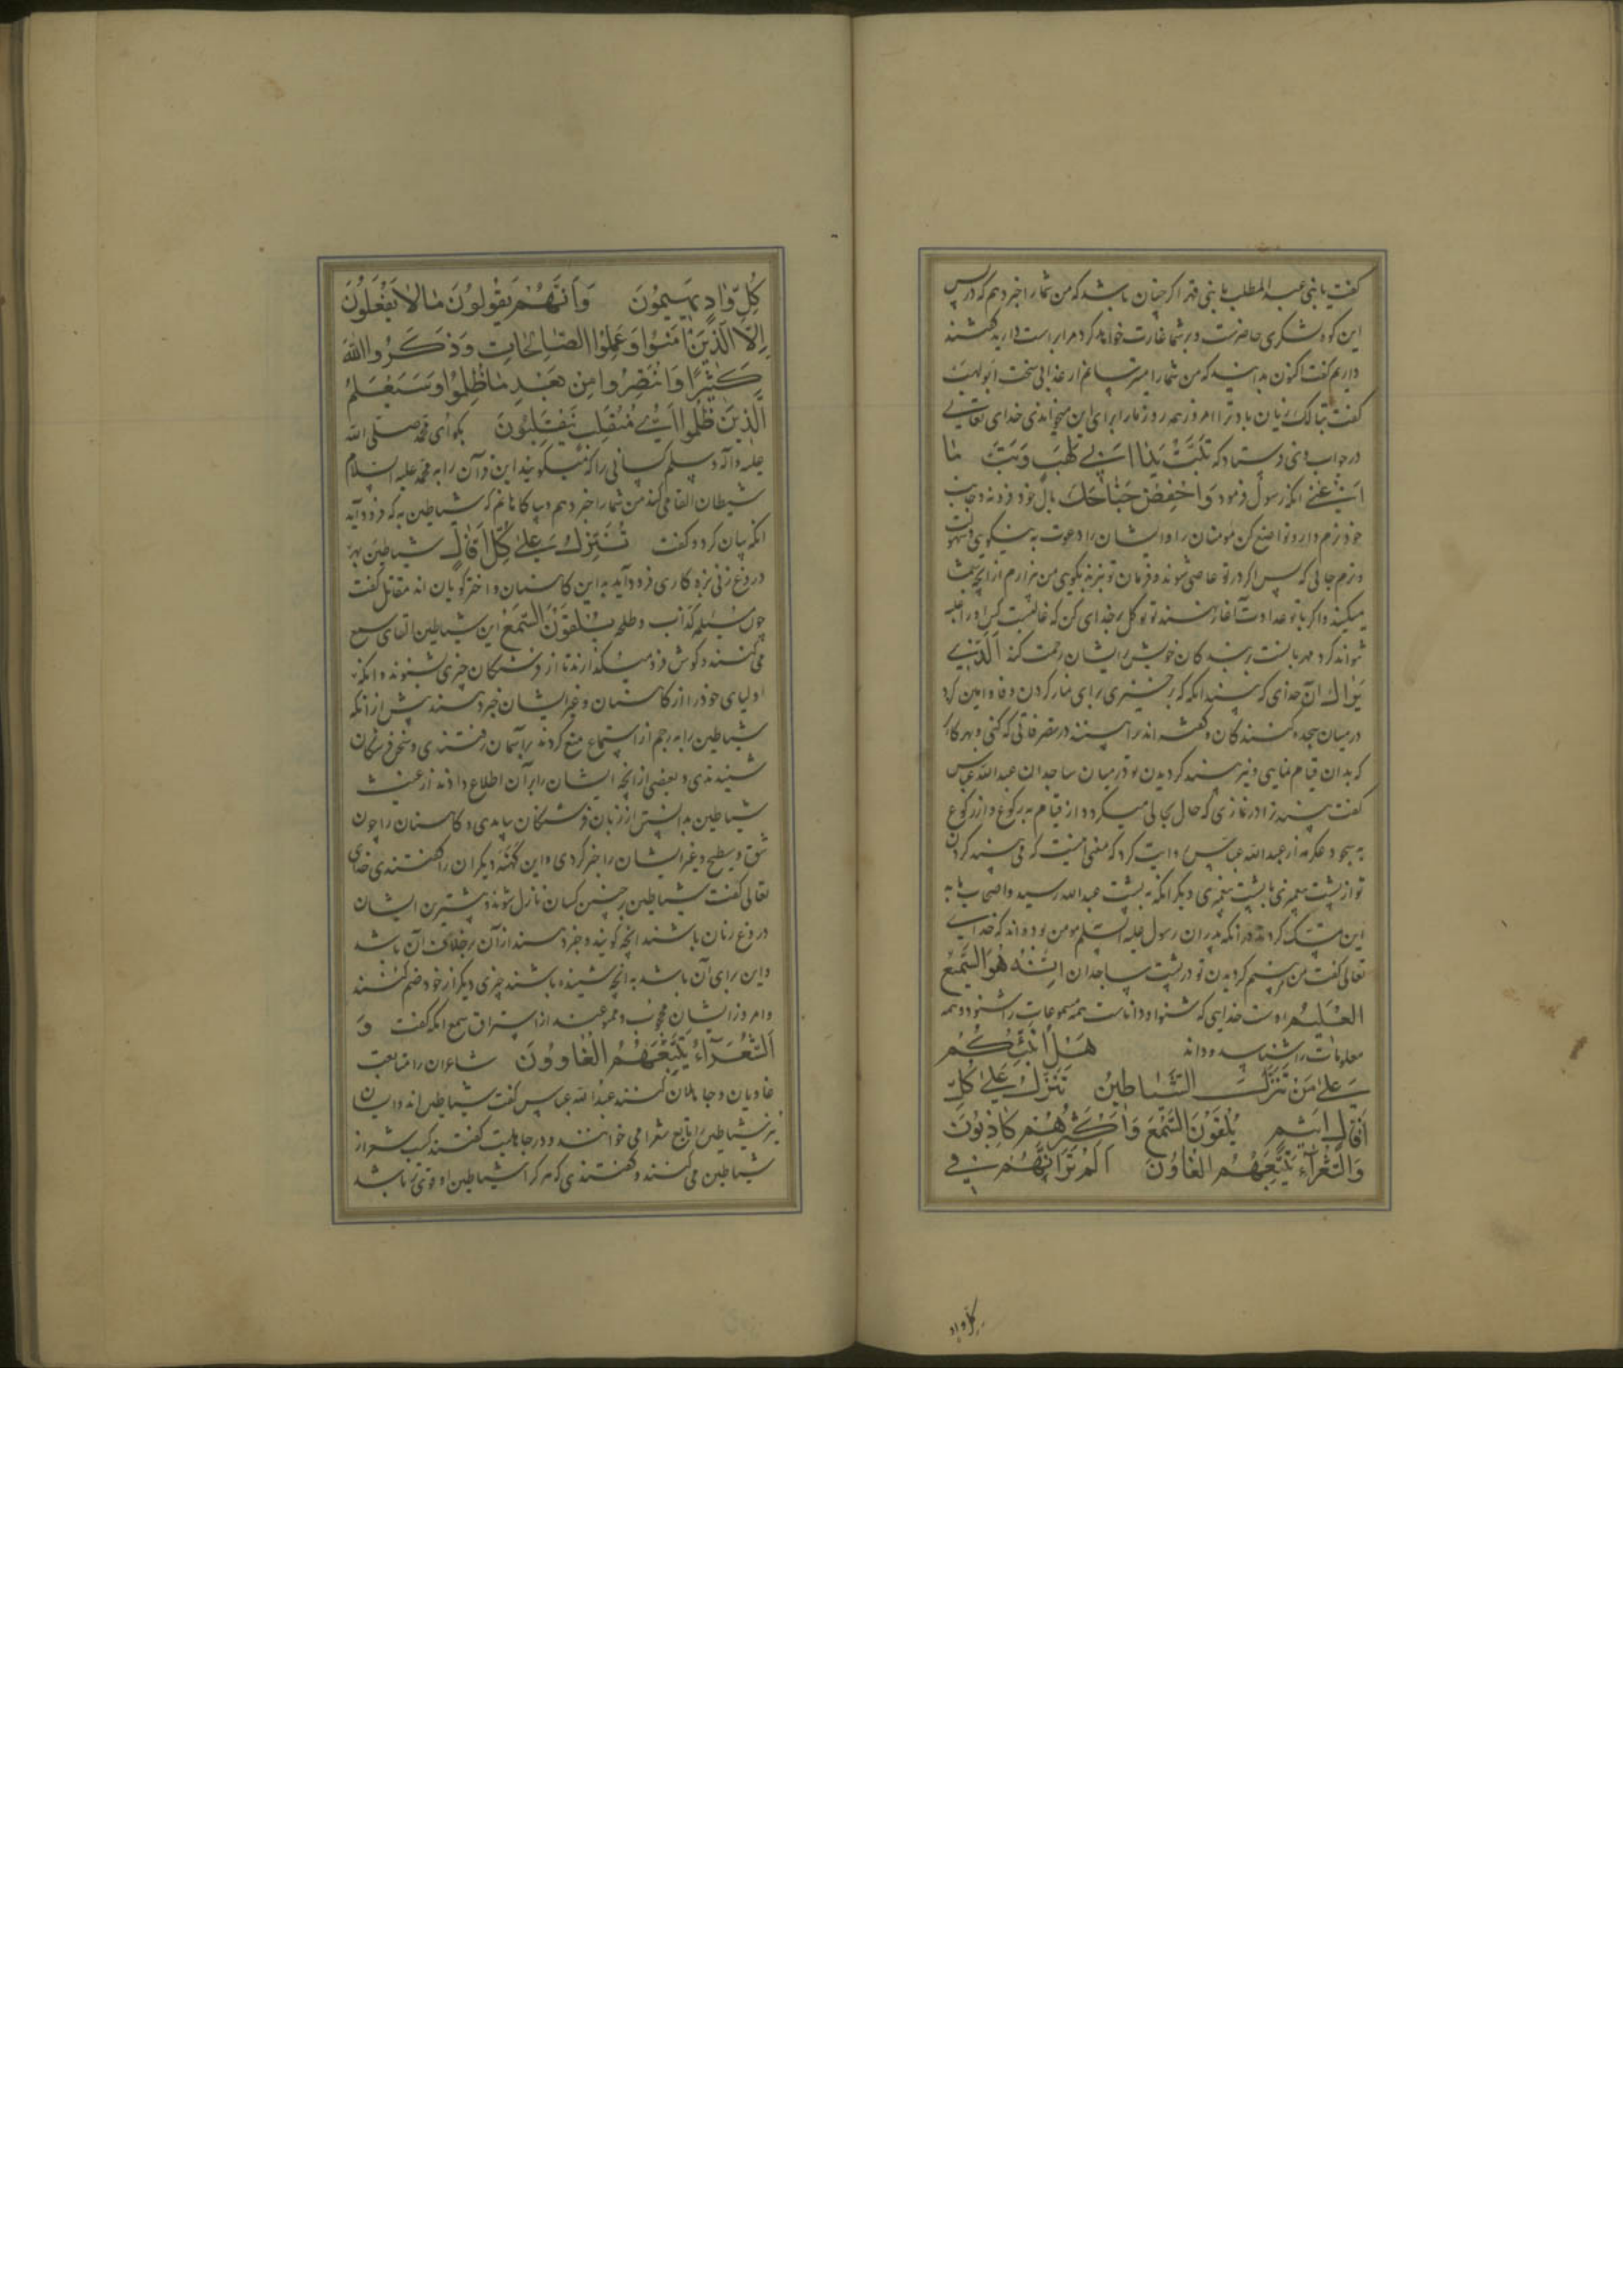 گفت یا بنی عبد المطلب یا بنی فهر اگر چنان باشد که من شما را خبر دهم که در پس
این کوه لشکری حاضرست و بر شما غارت خواهد کرد مرا براست دارید گفتند
داریم گفت اکنون بدانید که من شما را میترسانم از عذابی سخت ابو لهب
گفت تبا لک زیان باد ترا امروز همه روز ما را برای این میخواندی خدای تعالی
در جواب وی فرستاد که تَبَّتْ يَدَا اَبِي لَهَبٍ وَتَبَّ مَا
اَغْنٰى آنگه رسول فرمود وَاخْفِضْ جَنَاحَكَ بال خود فرونه و جانب
خود نرم دار و تواضع کن مومنان را و ایشان را دعوت به نیکویی و سهولت
و نرم جانبی که پس اگر در تو عاصی شوند و فرمان تو نبرند بگوی من بیزارم از آنچه شما
میکنید و اگر با تو عداوت آغاز کنند تو توکل بر خدای کن که غالبست کس او را غلبه
نتواند کرد مهربانست بر بندگان خویش بر ایشان رحمت کند اَلَّذِي
يَرٰاكَ آن خدای که بیند آنگه که برخیزی برای نماز کردن
در میان سجده کنندگان و گفته‌اند ترا بیند در متصرفاتی که کنی و بهر کار
که بدان قیام نمایی و نیز بیند گردیدن تو در میان ساجدان عبد الله عباس
گفت بیند ترا در نمازی که حال بحالی میگردد از قیام به رکوع و از رکوع
به سجود عکرمه از عبد الله عباس روایت کرد که معنی آنست که می بیند گردیدن
تو از پشت پیغمبری با پشت پیغمبری دیگر آنگه به پشت عبد الله رسید و اصحاب ما به
این تمسک کردند در آنکه پدران رسول علیه السلم مومن بوده‌اند که خدای
تعالی گفت من بینم گردیدن تو در پشت ساجدان اِنَّهُ هُوَ السَّمِيعُ
الْعَلِيمُ اوست خدایی که شنوا و داناست همه مسموعات را شنود و همه
معلومات را شناسد و داند هَلْ اُنَبِّئُكُمْ
عَلٰى مَنْ تَنَزَّلُ الشَّيَاطِينُ تَنَزَّلُ عَلٰى كُلِّ
اَفَّاكٍ اَثِيمٍ يُلْقُونَ السَّمْعَ وَاَكْثَرُهُمْ كَاذِبُونَ
وَالشُّعَرَآءُ يَتَّبِعُهُمُ الْغَاوُنَ اَلَمْ تَرَ اَنَّهُمْ فِي
کل واد
كُلِّ وٰادٍ يَهِيمُونَ وَاَنَّهُمْ يَقُولُونَ مٰا لاٰ يَفْعَلُونَ
اِلَّا الَّذِينَ اٰمَنُوا وَعَمِلُوا الصّٰالِحَاتِ وَذَكَرُوا اللّٰهَ
كَثِيرًا وَانْتَصَرُوا مِنْ بَعْدِ مٰا ظُلِمُوا وَسَيَعْلَمُ
الَّذِينَ ظَلَمُوا اَيَّ مُنْقَلَبٍ يَنْقَلِبُونَ بگو ای محمد صلی الله
علیه و آله و سلم کسانی را که میگویند این قرآن را به محمد علیه السلام
شیطان القا می کند من شما را خبر دهم و بیاگاهانم که شیاطین به که فرود آید
آنگه بیان کرد و گفت تَنَزَّلُ عَلٰى كُلِّ اَفَّاكٍ شیاطین بهر
دروغ زنی بزه کاری فرود آید به این کاهنان و اخترگویان‌اند مقاتل گفت
چون مسیلمه کذاب و طلحه يُلْقُونَ السَّمْعَ این شیاطین القای سمع
می کنند و گوش فرو میگذارند تا از فرشتگان چیزی بشنوند و آنگه
اولیای خود را از کاهنان و غیر ایشان خبر دهند پیش از آنکه
شیاطین را به رجم از استماع منع کردند بر آسمان رفتندی و سخن فرشتگان
شنیدندی و بعضی از آنچه ایشان را بر آن اطلاع دادند از غیب
شیاطین بدانستی از زبان فرشتگان بیامدی و کاهنان را چون
شق و سطیح و غیر ایشان را خبر کردی و این کهنه دیگران را گفتندی خدای
تعالی گفت شیاطین بر چنین کسان نازل شوند و بیشترین ایشان
دروغ زنان باشند آنچه گویند و خبر دهند از آن بر خلاف آن باشد
و این برای آن باشد به آنچه شنیده باشند چیزی دیگر از خود ضم کنند
و امروز ایشان محجوب و ممنوعند از استراق سمع آنگه گفت وَ
اَلشُّعَرَآءُ يَتَّبِعُهُمُ الْغٰاوُونَ شاعران را متابعت
غاویان و جاهلان کنند عبد الله عباس گفت شیاطین‌اند و ایشان
نیز شیاطین را تابع شعرا می خوانند و در جاهلیت گفتند کسب شعر از
شیاطین می کنند و گفتندی که هر که را شیاطین او قوی تر باشد